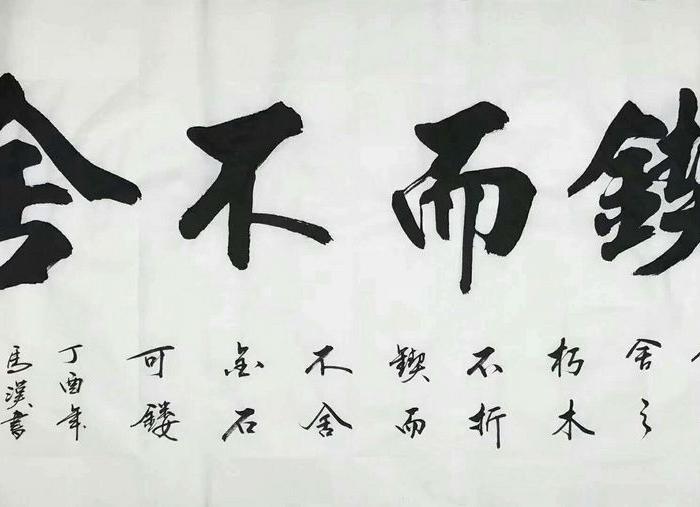 鍥而不舍
舍之
朽木
不折
鍥而
不舍
金石
可鏤
丁酉年
馬漢書